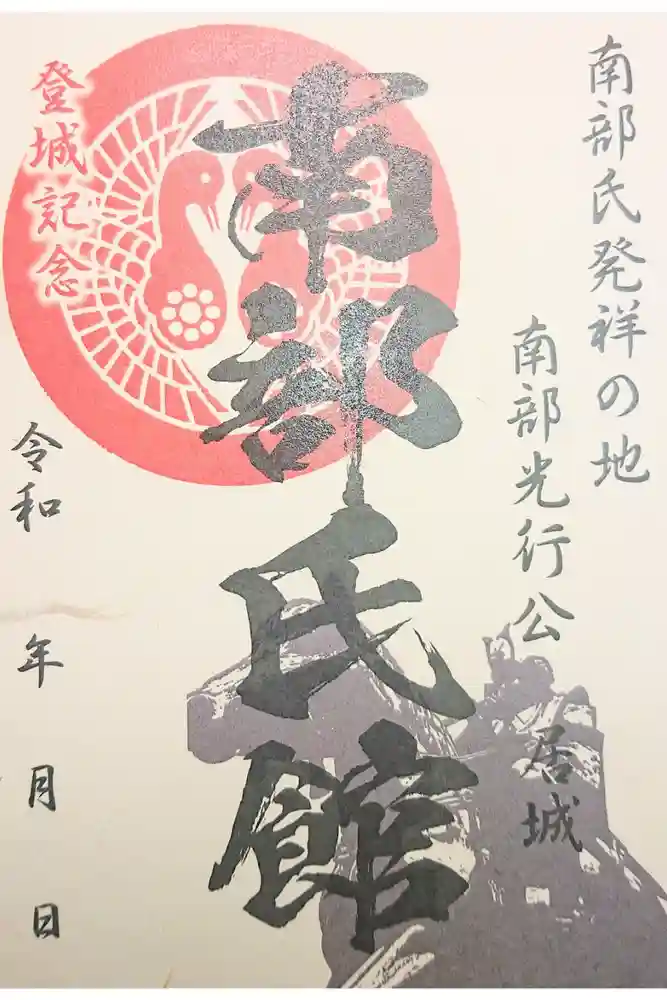 南部氏発祥の地
南部光行公
居城
南部氏館
登城記念
令和 年 月 日